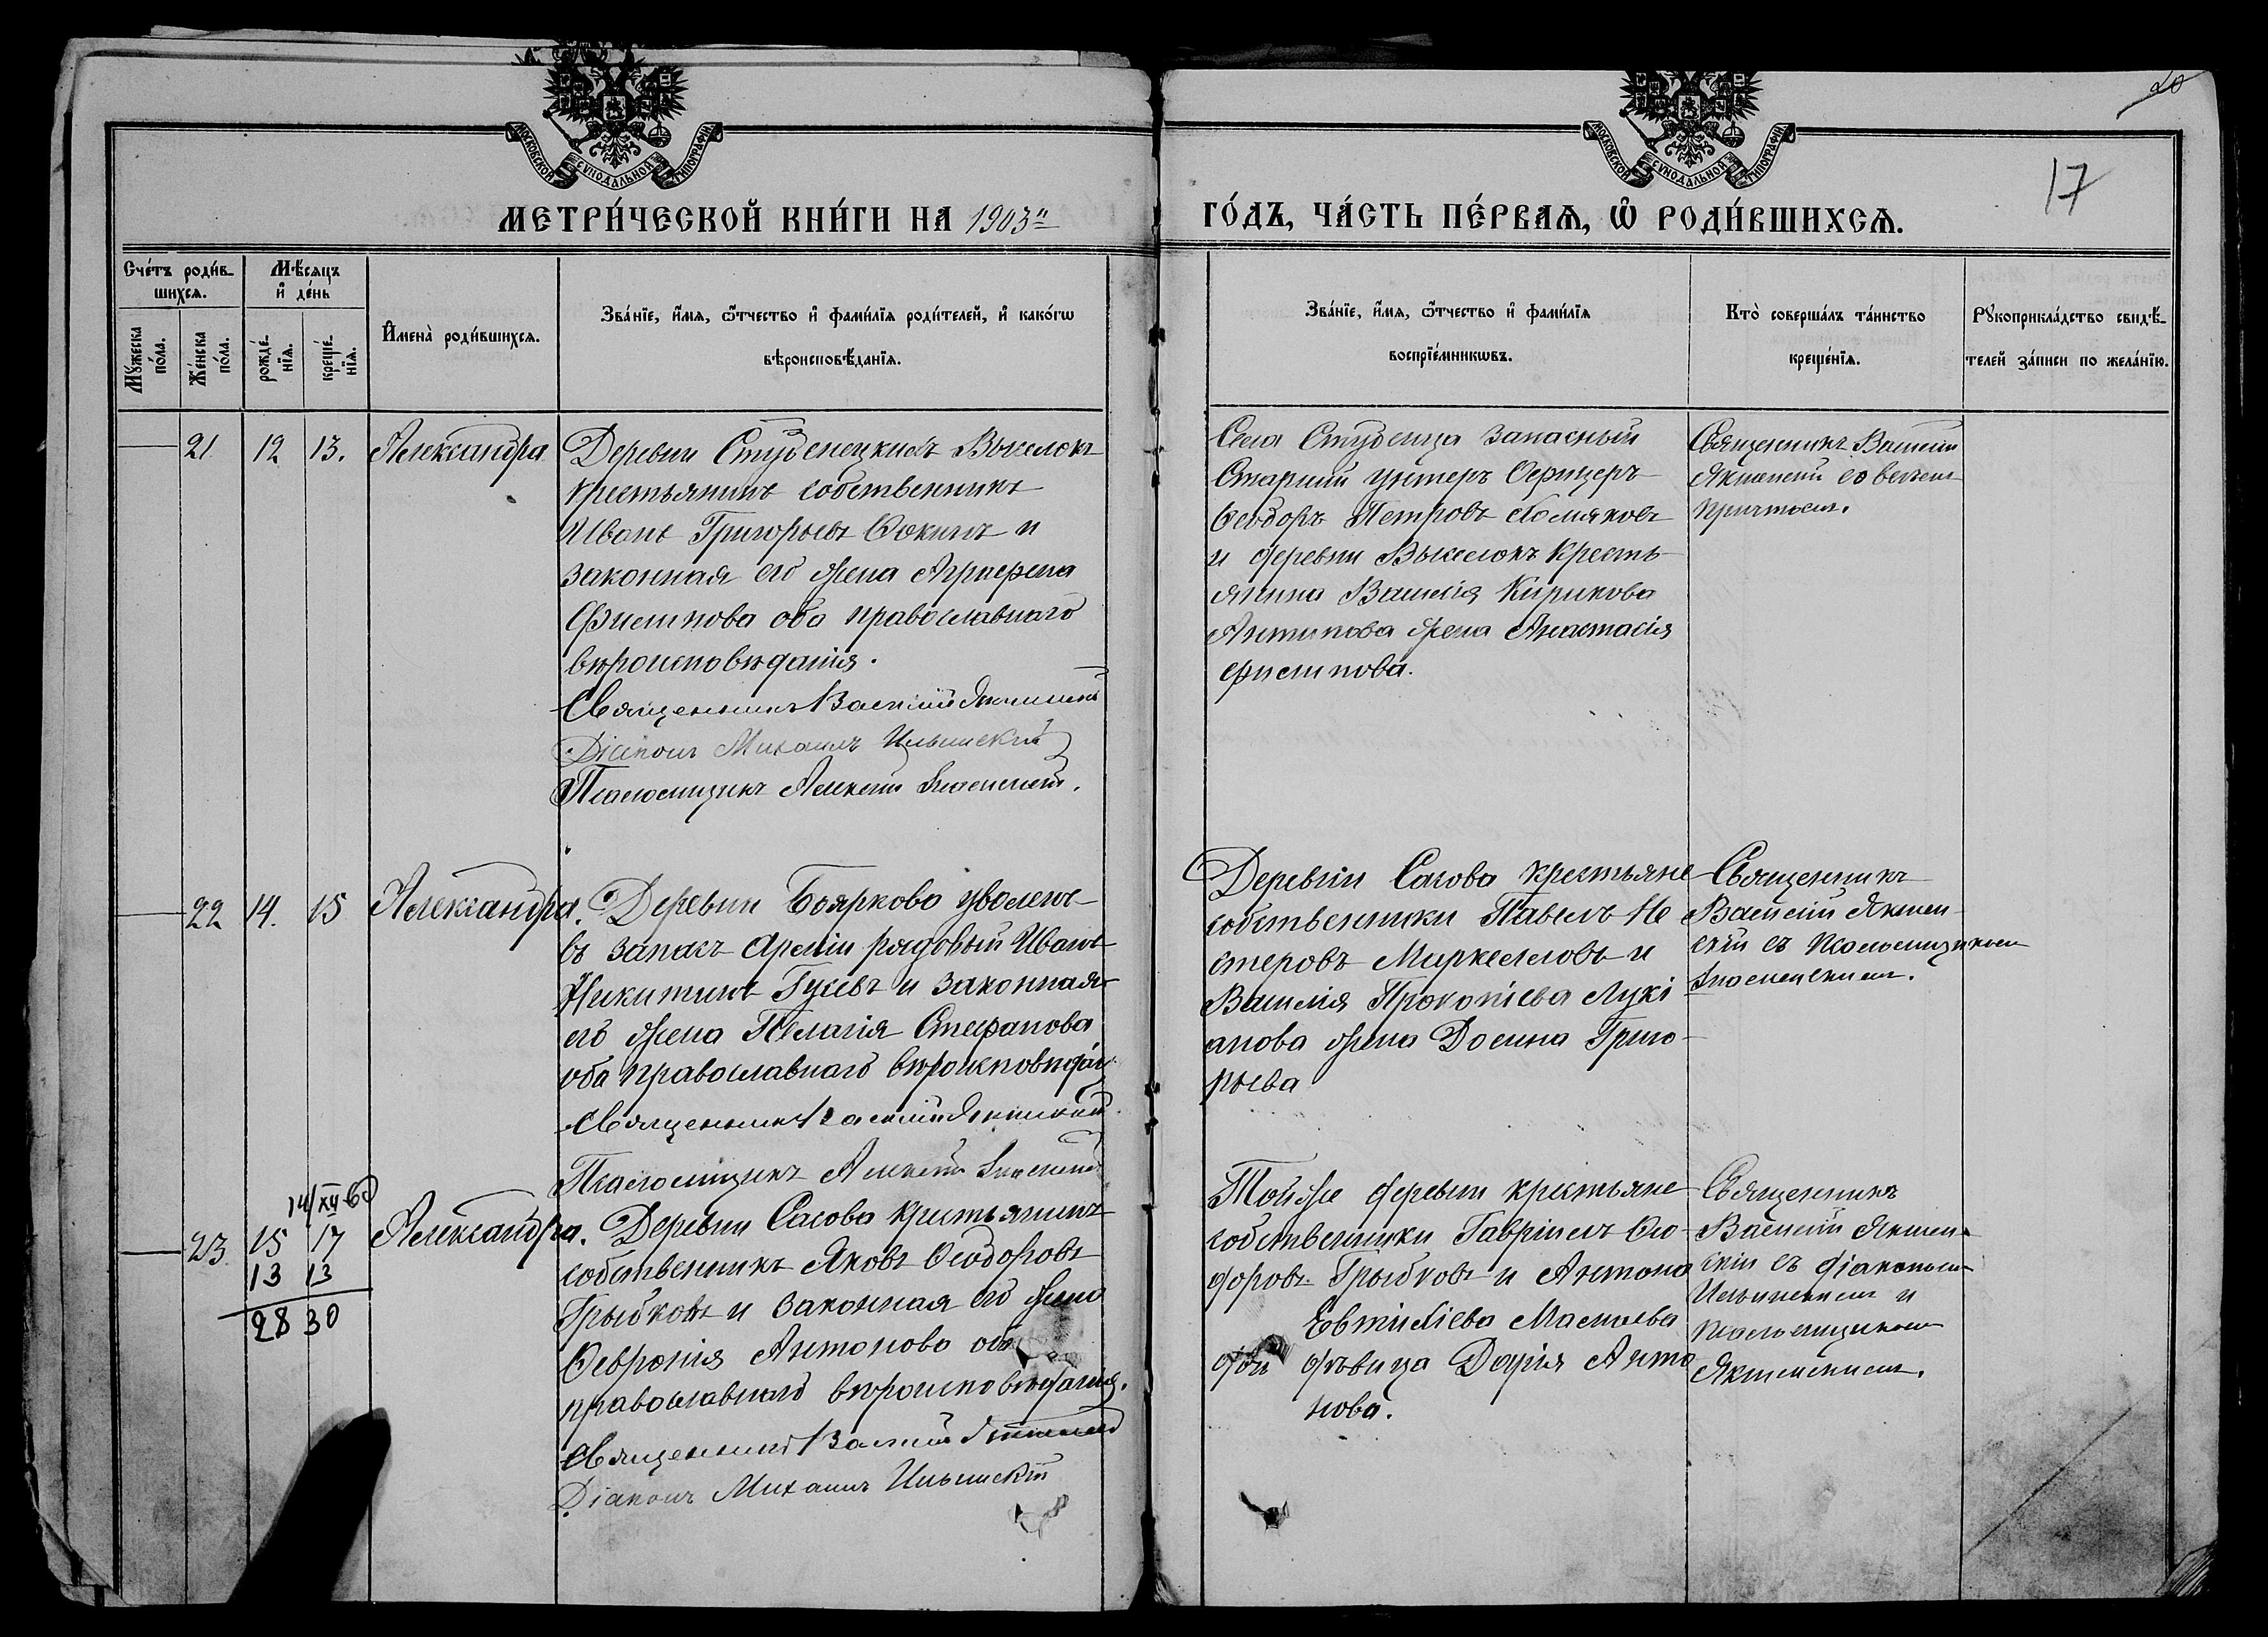 МОСКОВСКОЙ СѴНОДАЛЬНОЙ ТИПОГРАФІИ
МОСКОВСКОЙ СѴНОДАЛЬНОЙ ТИПОГРАФІИ
20
17
МЕТРИ́ЧЕСКОЙ КНИ́ГИ НА 1903й
ГО́ДЪ, ЧА́СТЬ ПЕ́РВАѦ, Ѡ РОДИ́ВШИХСѦ.
Сче́тъ роди́в-
шихсѧ.
Мꙋжеска
по́ла.
Же́нска
по́ла.
Мѣ́сѧцъ
и҆ де́нь
рожде́-
нїѧ.
креще́-
нїѧ.
И҆мена̀ роди́вшихсѧ.
Зва́нїе, и҆́мѧ, ѻ҆́тчество и҆ фами́лїѧ роди́телей, и҆ како́гѡ
вѣроисповѣ́данїѧ.
Зва́нїе, и҆́мѧ, ѻ҆́тчество и҆ фами́лїѧ
воспрїе́мникѡвъ.
Кто̀ соверша́лъ та́инство
креще́нїѧ.
Рꙋкоприкла́дство свидѣ́-
телей за́писи по жела́нїю.
21 12 13. Александра
Деревни Студенецкихъ Выселокъ
крестьянинъ собственникъ
Иванъ Григорьевъ Ѳокинъ и
законная его жена Агриппена
Филиппова оба православнаго
вѣроисповѣданія.
Священникъ Василій
Діаконъ Михаилъ Ильинскій
Псаломщикъ Алексѣй
Села Студенца запасный
Старшій унтеръ Офицеръ
Ѳеодоръ Петровъ Хомяковъ
и деревни Выселокъ кресть-
янина Василія Кирикова
Антипова жена Анастасія
Филиппова.
Священникъ Василій
со всѣмъ
причтомъ.
22 14. 15 Александра.
Деревни Боярково уволенъ
въ запасъ Арміи рядовый Иванъ
Никитинъ Гусевъ и законная
его жена Пелагія Стефанова
оба православнаго вѣроисповѣдан.
Священникъ Василій
Псаломщикъ Алексѣй
Деревни Сасова крестьяне
собственники Павелъ Не
стеровъ Маркелловъ и
Василія Прокопіева Лукі
анова жена Домна Григо-
рьева
Священникъ
Василій
скій съ псаломщикомъ
14/XII 60
23. 15 17 Александра.
13 13
28 30
Деревни Сасова крестьянинъ
собственникъ Яковъ Ѳеодоровъ
Грыбковъ и законная его жена
Ѳевронія Антонова оба
православнаго вѣроисповѣданія.
Священникъ Василій
Діаконъ Михаилъ Ильинскій
Той же деревни крестьяне
собственники Гавріилъ Ѳео-
доровъ Грыбковъ и Антона
Евтихіева Маслова
дочь дѣвица Дарія Анто
нова.
Священникъ
Василій
скій съ діакономъ
Ильинскимъ и
псаломщикомъ